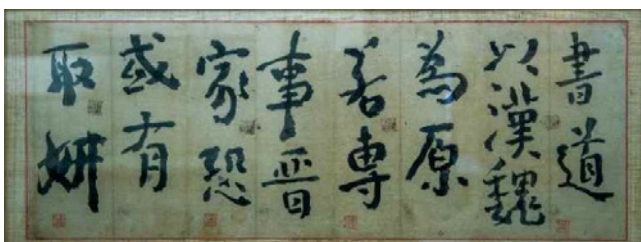 書道
以漢魏
為原
若專
事晉
家恐
或有
取妍